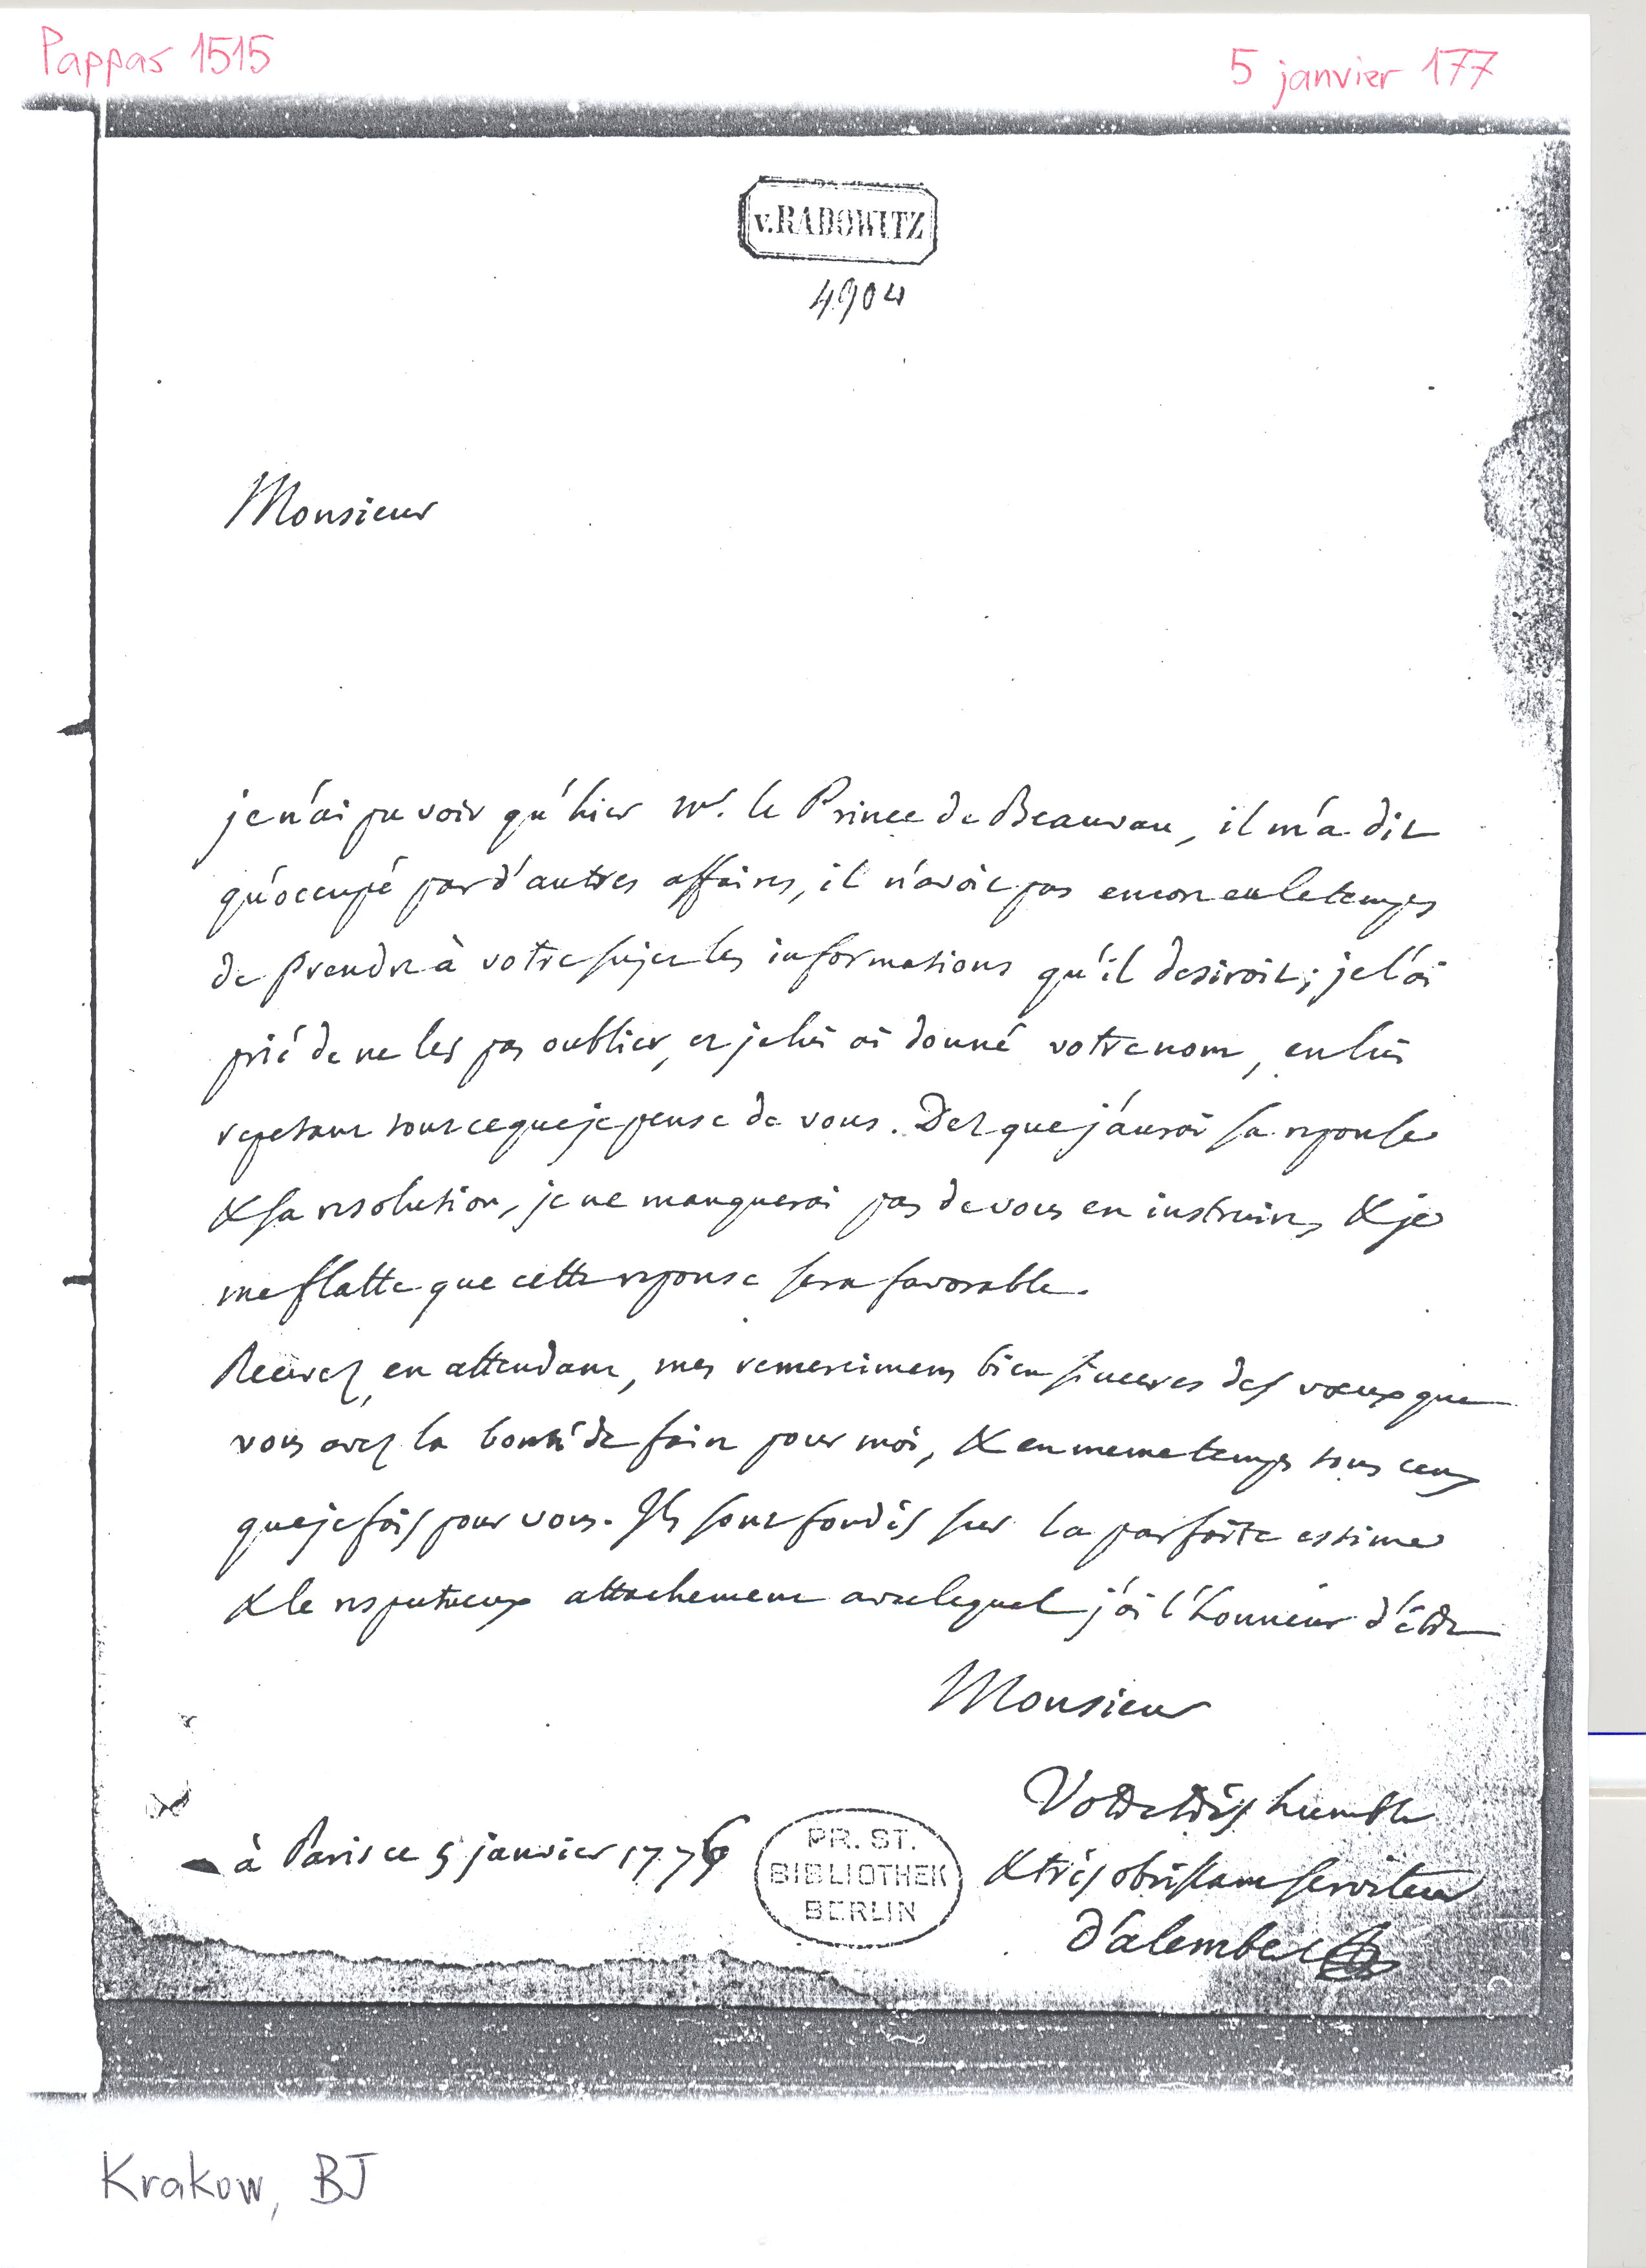 Pappas 1515
5 janvier 177
v. RADOWITZ
4904
Monsieur
je n'ai pu voir qu'hier mr. le Prince de Beauvau, il m'a dit
qu'occupé par d'autres affaires, il n'avoit pas encore eu le temps
de prendre à votre sujet les informations qu'il desiroit; je l'ai
prié de ne les pas oublier, et je lui ai donné votre nom, en lui
repetant tout ce que je pense de vous. Dez que j'aurai sa reponse
& sa resolution, je ne manquerai pas de vous en instruire, & je
me flatte que cette reponse sera favorable.
Recevez, en attendant, mes remercimens bien sinceres des vœux que
vous avez la bonté de faire pour moi, & en meme temps tous ceux
que je fais pour vous. Ils sont fondés sur la parfaite estime
& le respectueux attachement avec lequel j'ai l'honneur d'être
Monsieur
Votre très humble
& très obéissant serviteur
à Paris ce 5 janvier 1776
PR. ST.
BIBLIOTHEK
BERLIN
d'alembert
Krakow, BJ